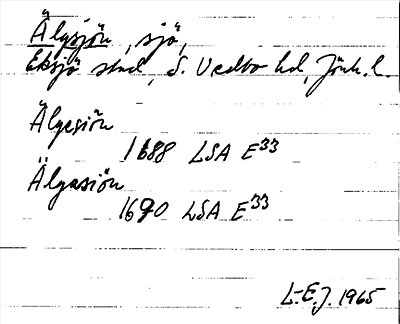 Älgsjön, sjö,
Eksjö stad, S. Vedbo hd, Jönk. l.
Älgesiön
1688 LSA E33
Älgasiön
1690 LSA E33
L-E.J. 1965